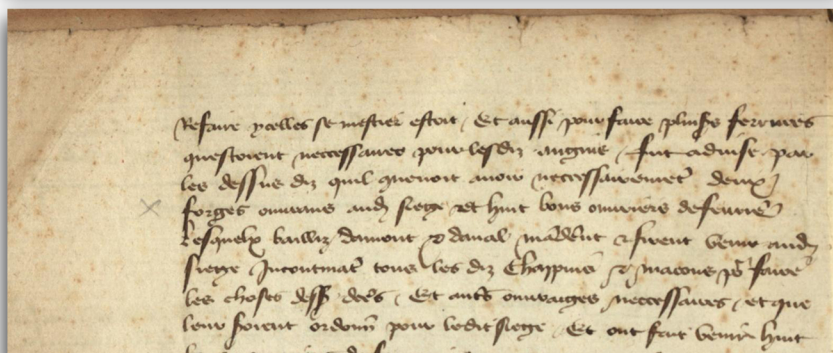 Refaire ycelles se mestier estoit / Et aussi pour faire plus⁹s ferrures
questoient neccessaires pour lesdiz engins / fut advise par
les dessus diz quil quenoit avoir neccessairement deux
forges ouvrans aud siege et huit bons ouvriers de ferrure
Lesquelx bailliz damont & daval mandent & firent venir aud
siege Incontinat tous les diz Chappuis & macons pr faire
les choses dess dces / Et auts ouvraiges neccessaires / et que
leur soient ordonn pour ledit siege / Et ont fait venir huit